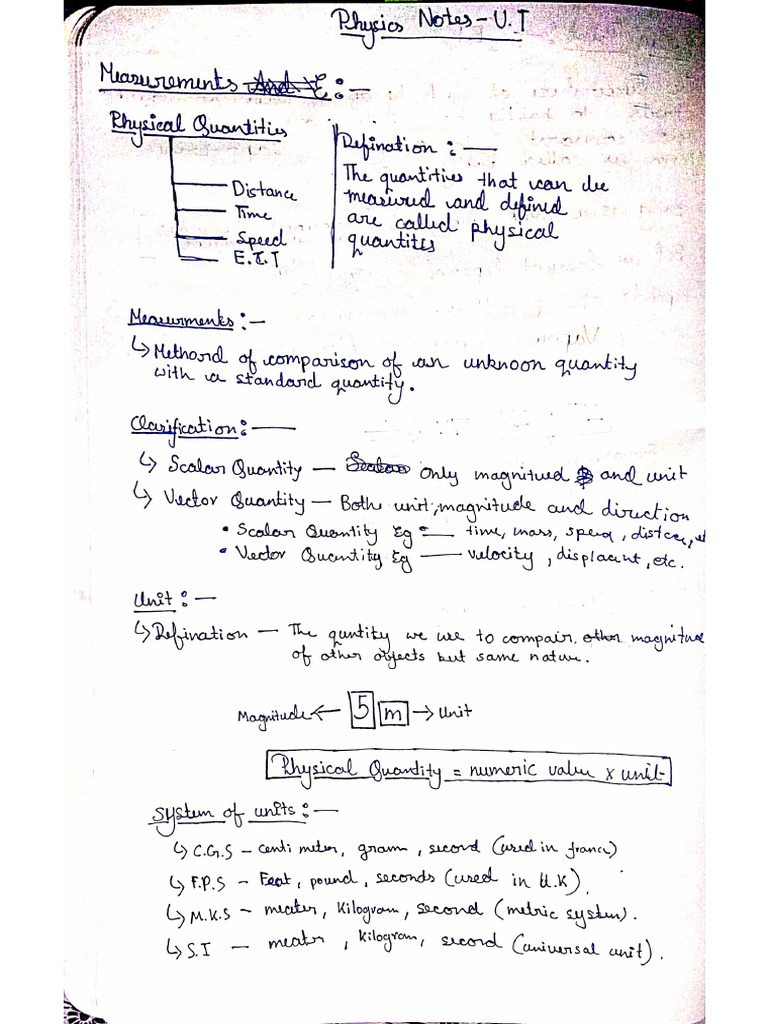 Physics Notes - U.T
Measurements And E :-
Physical Quantities
Distance
Time
Speed
E.T.T
Defination :-
The quantities that can be
measured and defined
are called physical
quantites
Measurments :-
↳ Methord of comparison of an unknoon quantity
with a standard quantity.
Clarification :-
↳ Scalar Quantity - Scalar only magnitued and unit
↳ Vector Quantity - Both unit, magnitude and direction
• Scalar Quantity Eg - time, mass, speed, distce, et
• Vector Quantity Eg - velocity, displacent, etc.
Unit :-
↳ Defination - The quntity we use to compair other magnitude
of other objects but same nature.
Magnitude ← 5 m → Unit
Physical Quantity = numeric value x unit
System of units :-
↳ C.G.S - centi meter, gram, second (used in france)
↳ F.P.S - Feat, pound, seconds (used in U.K).
↳ M.K.S - meater, Kilogram, second (metric system).
↳ S.I - meater, Kilogram, second (universal unit).